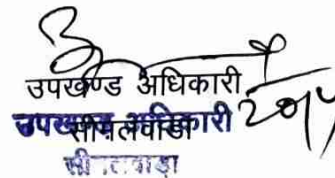 उपखण्ड अधिकारी
उपखण्ड अधिकारी
सीमलवाडा
सीमलवाडा